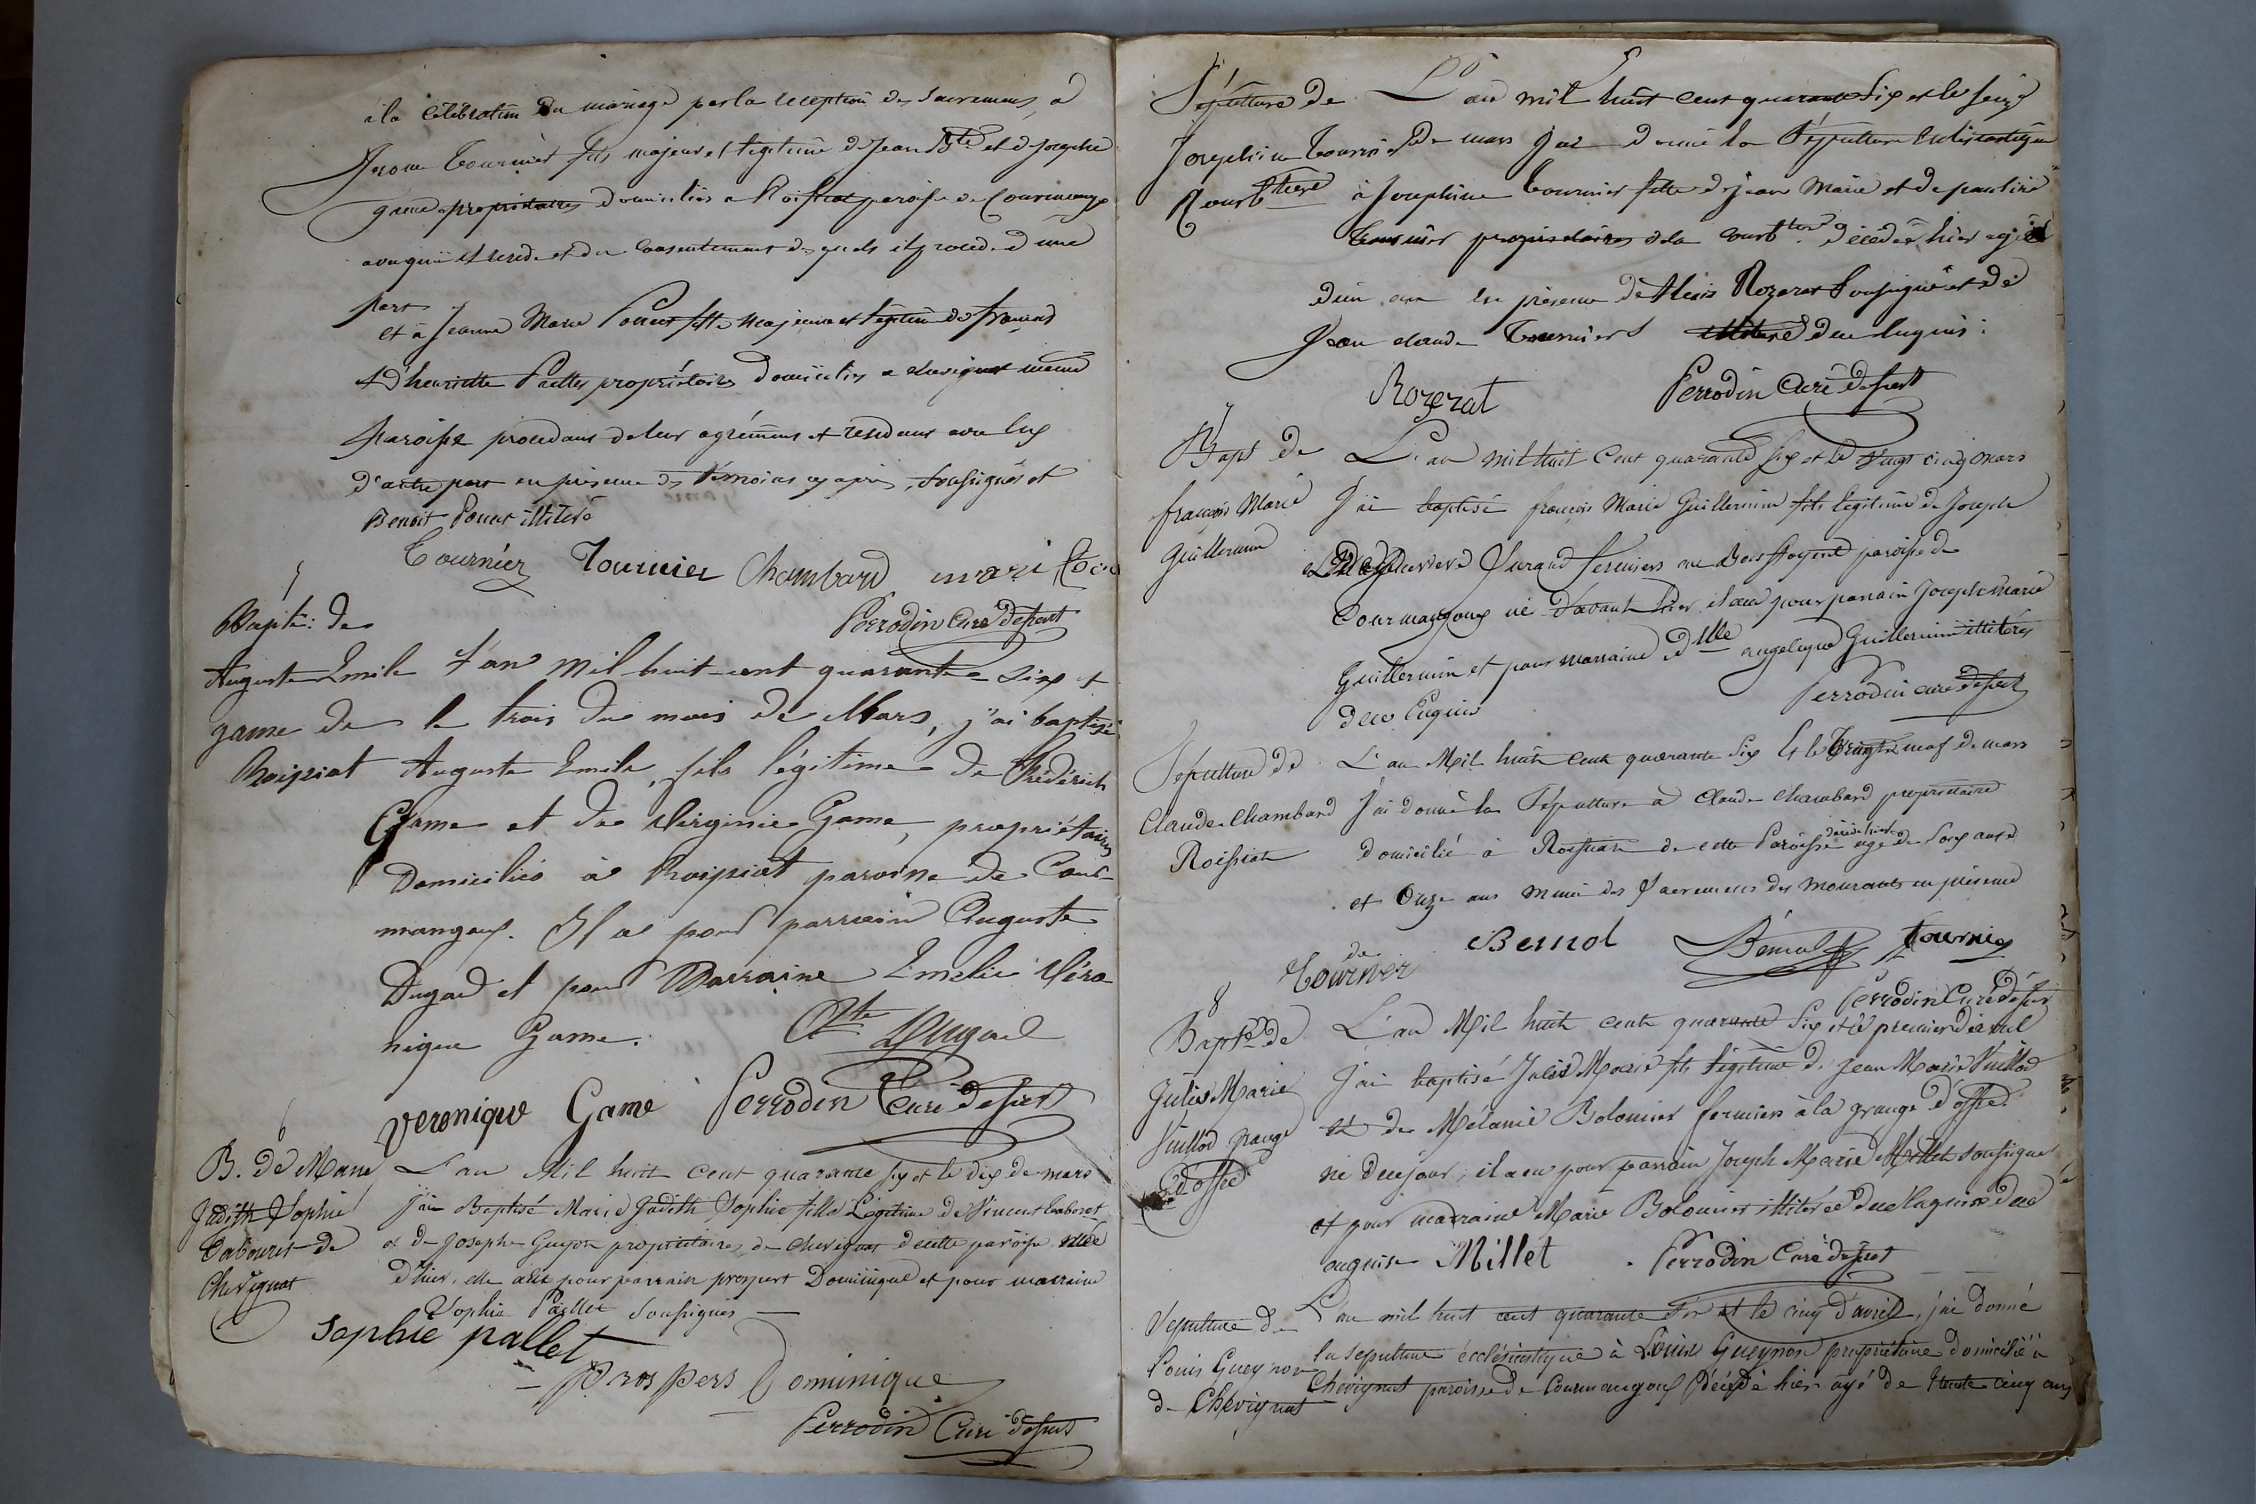 à la célébration du mariage par la réception des sacremens, à
tournier fils majeur et légitime de Jean Bte et de Josephe
game propriétaires domiciliés a Roissiat paroisse de Courmangoux
avec qui il reside et du consentement desquels il procede d'une
part
et à Jeanne Marie fille majeure et légitime de françois
et d'henriette Paillet propriétaires domiciliés a chevignat même
paroisse procedant de leur agrément et résidant avec eux
d'autre part en présence des témoins cy après soussignés et
Benoit illitéré
Tournier Tournier Chambard
Perrodin Curé desservt
5
Bapte: de
Auguste Emile
game de
Roissiat
L'an mil-huit-cent quarante-six et
le trois du mois de Mars, j'ai baptisé
Auguste Emile, fils légitime de Frédérich
Game et de Virginie Game, propriétaires
domiciliés à Roissiat paroisse de Cour-
mangoux. Il a pour parrain Auguste
Dugad et pour Marraine Emelie Véro-
nique Game.
veronique Game Perrodin Curé desservt
6
B. de Marie
Judith Sophie
de
Chevignat
L'an Mil huit cent quarante six et le dix de mars
j'ai Baptisé Marie Judith Sophie fille Légitime de Vincent
et de Josephe Guyon propriétaires de Chevignat de cette paroisse née
d'hier, elle a eu pour parrain prospert Dominique et pour marraine
Sophie Paillet soussignés
Sophie pallet
Prospers Dominique
Perrodin Curé desservt
Sépulture de
Josephine tournier
L'an mil huit cent quarante six et le seize
de mars j'ai donné la Sépulture ecclésiastique
à Josephine tournier fille de jean Marie et de pauline
tournier propriétaires de la décédée hier agée
d'un an en présence d'Alexis Rozerat soussigné et de
Jean claude Tournier illitéré de ce enquis:
Rozerat Perrodin Curé desservt
7
Bapt de
francois Marie
Guillermin
L'an mil huit cent quarante six et le vingt cinq mars
J'ai baptisé francois Marie Guillermin fils légitime de Joseph
Durand fermiers au Bois paroisse de
Courmangoux né d'avant hier, il a eu pour parrain Joseph marie
Guillermin et pour marraine angelique Guillermin illitérés
de ce Enquis Perrodin curé desservt
Sépulture de
Claude Chambard
Roissiat
L'an Mil huit cent quarante six Et le vingt neuf de mars
J'ai donné la Sépulture a Claude Chambard propriétaire
domicilié à Roissiat de cette Paroisse décédé hier agé de soixante
et Onze ans muni des Sacremens des mourants en présence
de
Tournier Bernol Bernol tournier
Perrodin Curé desser
8
Bapte de
Jules Marie
Vuillod grange
d'osse
L'an Mil huit cent quarante six et le premier d'avril
j'ai baptisé Jules Marie fils légitime de Jean Marie Vuillod
et de Mélanie Bolomier fermiers à la grange d'osse
né de ce jour; il a eu pour parrain Joseph Marie Millet soussigné
et pour marraine Marie Bolomier illitérée de ce Enquise
Millet Perrodin Curé desservt
Sépulture de
Louis Gueynon
de Chevignat
L'an mil huit cent quarante six et le cinq d'avril, j'ai donné
la sépulture ecclésiastique à Louis Gueynon propriétaire domicilié à
Chevignat paroisse de Courmangoux décédé hier âgé de trente cinq ans